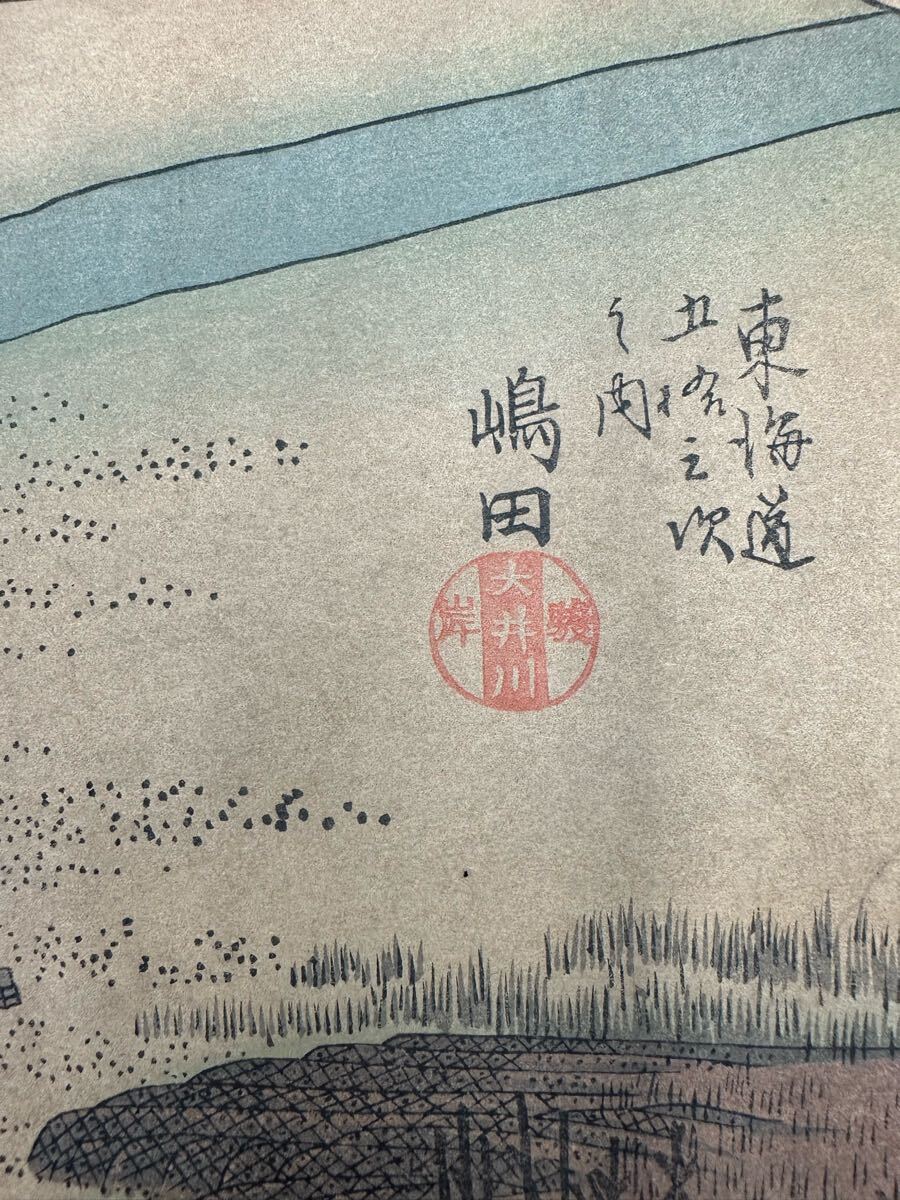 東海道
五拾三次
之内
嶋田
大井川
駿
岸